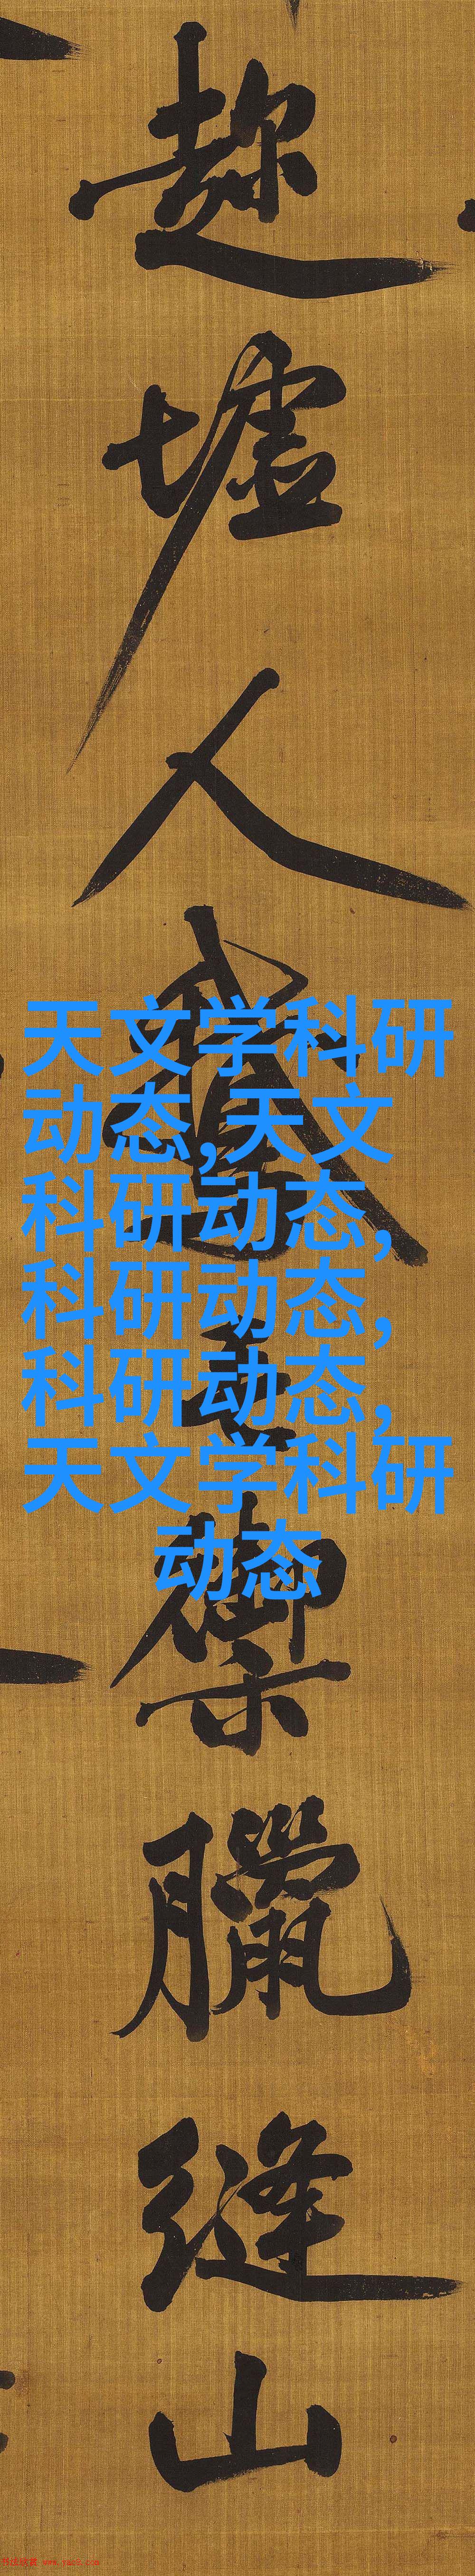 趂墟人
御臘縫山
天文学科研
动态,天文
科研动态,
科研动态,
科研动态,
天文学科研
动态